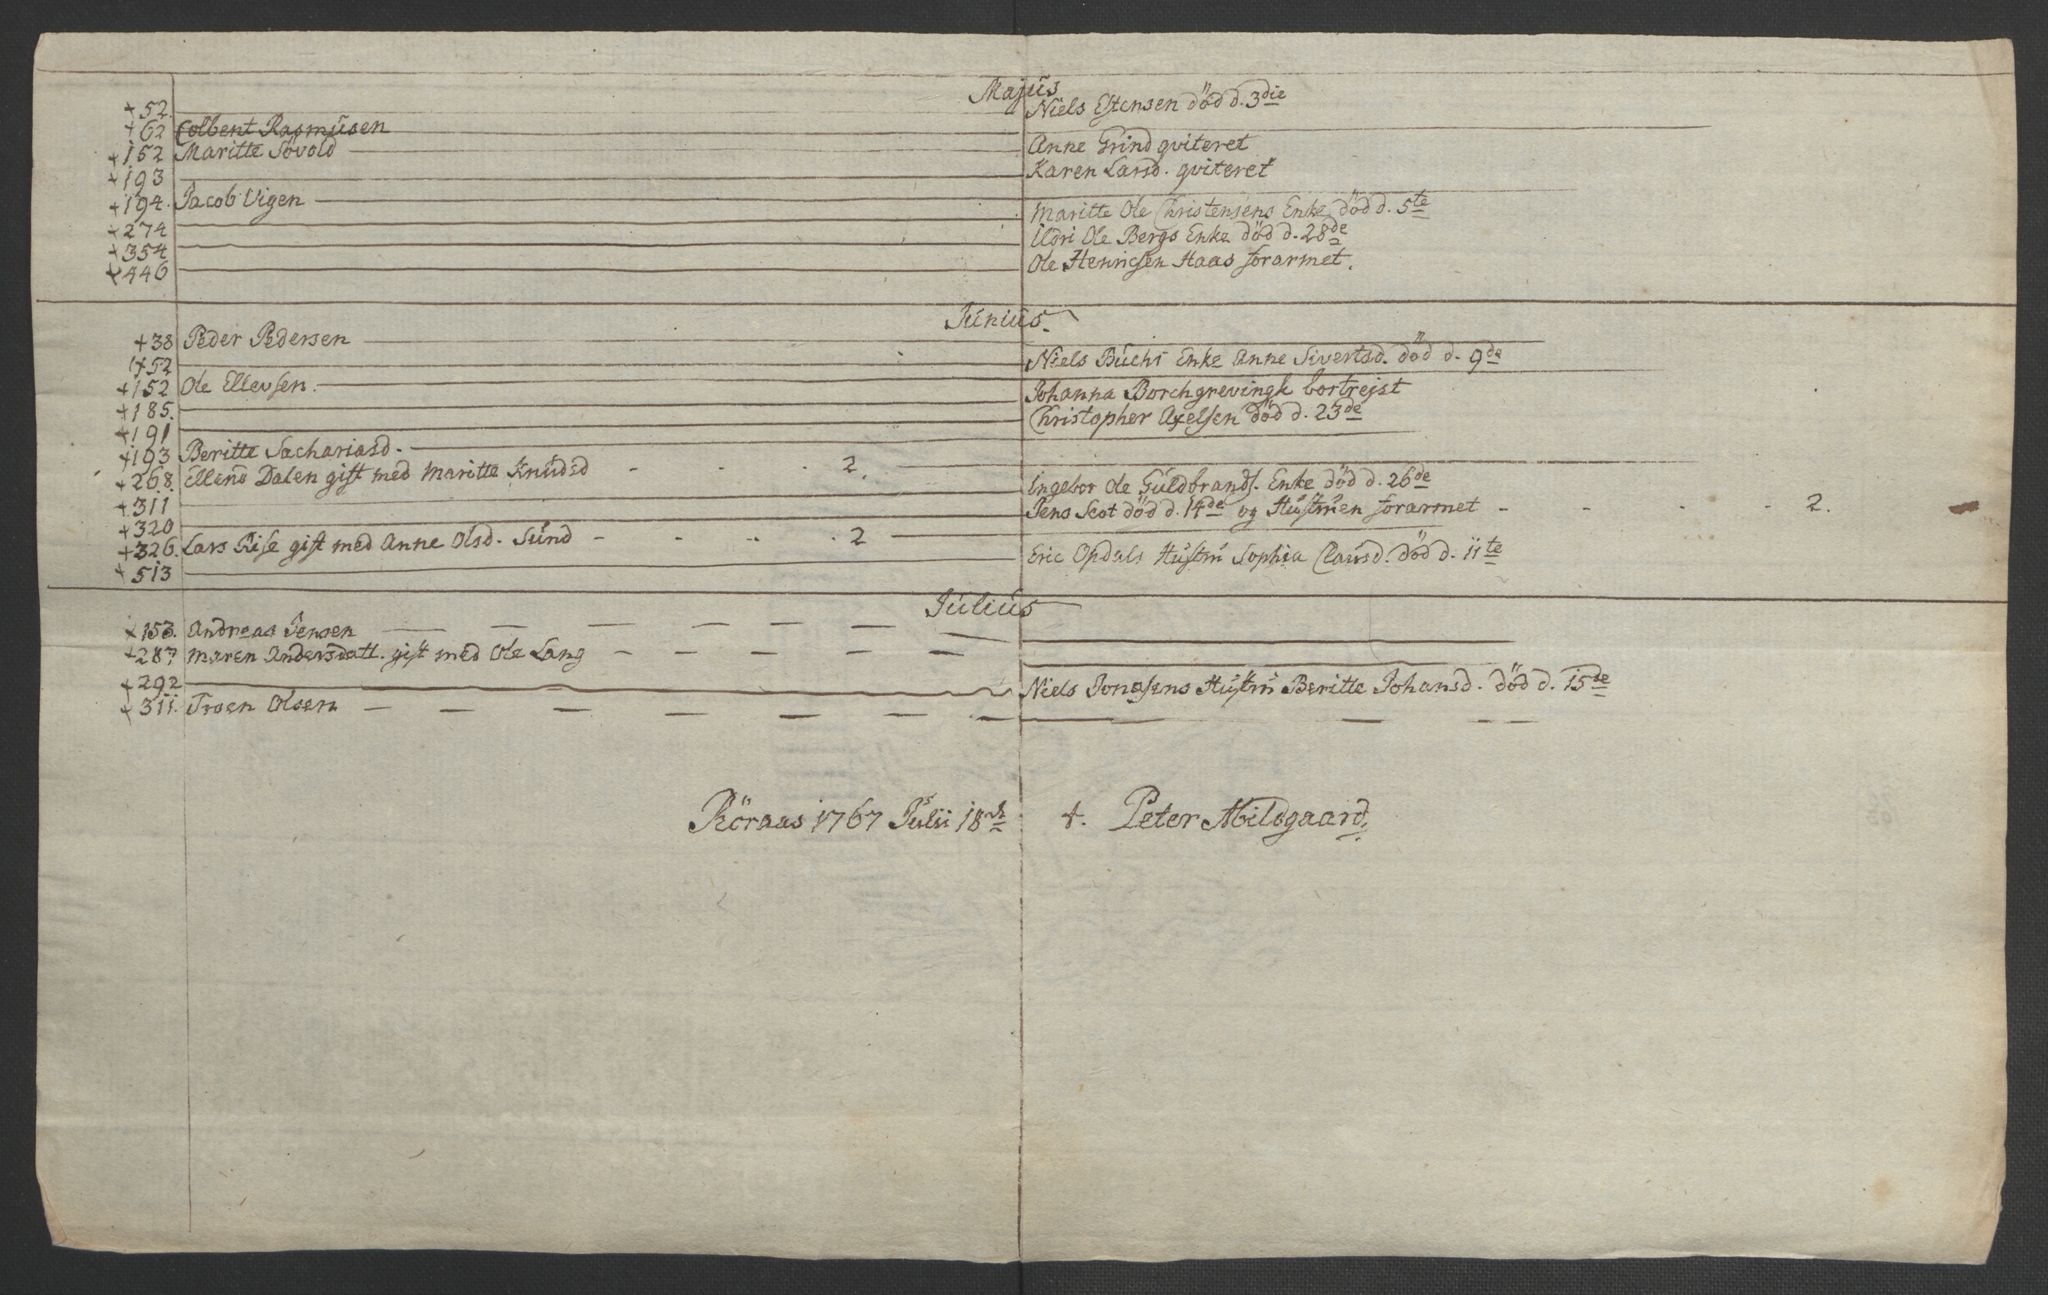 Majus
+ 52. Niels Estensen död d. 3die
+ 62 Colbent Rasmusen
+ 152 Maritte Sovold Anne Grind qviteret
+ 193 Karen Larsd. qviteret
+ 194. Jacob Vigen
+ 274 Maritte Ole Christensens Enke död d. 5te
+ 354 Uldri Ole Bergs Enke död d. 28de
+ 446 Ole Henricsen Haas forarmet.
Junius.
+ 38 Peder Pedersen
+ 52 Niels Buchs Enke Anne Sivertsd. död d. 9de
+ 152 Ole Ellevsen.
+ 185. Johanna Borchgrevingk bortrejst
+ 191 Christopher Axelsen död d. 23de
+ 193 Beritte Sachariasd.
+ 268. Ellend Dalen gift med Maritte Knudsd - - - 2.
+ 311 Ingebor Ole Guldbrands. Enke död d. 26de
+ 320 Jens Scot död d. 14de og Hustruen forarmet - - - - 2.
+ 326. Lars Rise gift med Anne Olsd. Sund - - - - 2
+ 513 Eric Opdals Hustru Sophia Clausd. död d. 11te
Julius
+ 153. Andreas Jensen
+ 287 Maren Andersdatt. gift med Ole Lang
+ 292 Niels Jonasens Hustru Beritte Johansd. död d. 15de
+ 311. Troen Olsen
Röraas 1767 Julii 18de Peter Abildgaard.